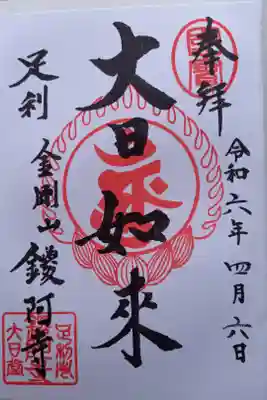 奉拝
令和六年四月六日
大日如来
足利
金剛山鑁阿寺
大日堂